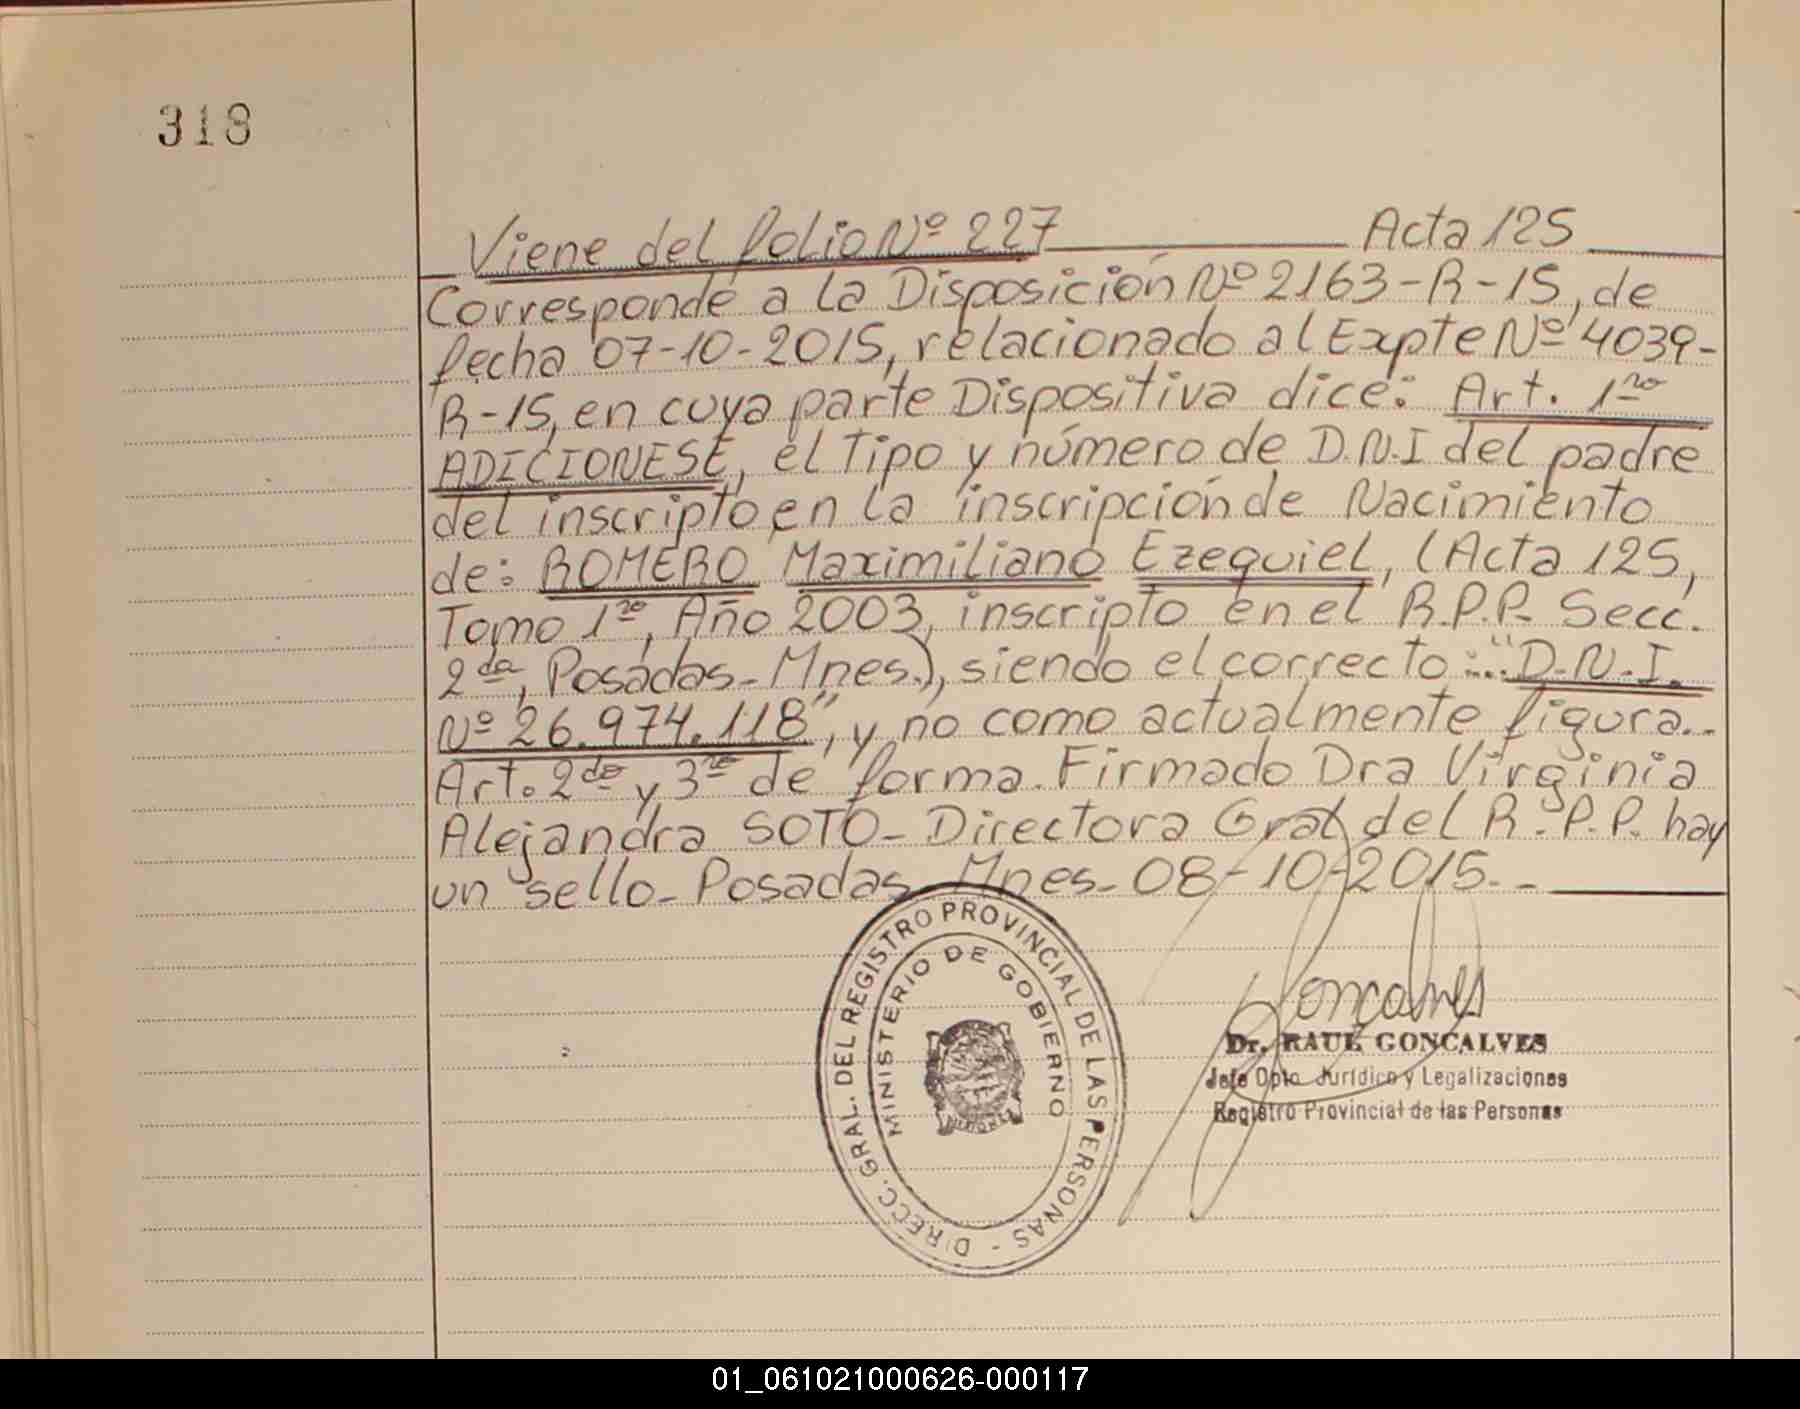 318
Viene del folio Nº 227 Acta 125
Corresponde a la Disposición Nº 2163-R-15, de
fecha 07-10-2015, relacionado al Expte Nº 4039-
R-15, en cuya parte Dispositiva dice: Art. 1ro
ADICIONESE, el Tipo y número de D.N.I del padre
del inscripto en la inscripción de Nacimiento
de: ROMERO Maximiliano Ezequiel, (Acta 125,
Tomo 1ro, Año 2003, inscripto en el R.P.P. Secc.
2da, Posadas-Mnes.), siendo el correcto:..."D.N.I.
Nº 26.974.118", y no como actualmente figura..-
Art. 2do y 3ro de forma. Firmado Dra Virginia
Alejandra SOTO- Directora Gral del R.P.P. hay
un sello- Posadas Mnes- 08-10-2015.-
DIRECC. GRAL. DEL REGISTRO PROVINCIAL DE LAS PERSONAS -
MINISTERIO DE GOBIERNO
MISIONES
Goncalves
Dr. RAUL GONCALVES
Jefe Dpto Jurídico y Legalizaciones
Registro Provincial de las Personas
01_061021000626-000117